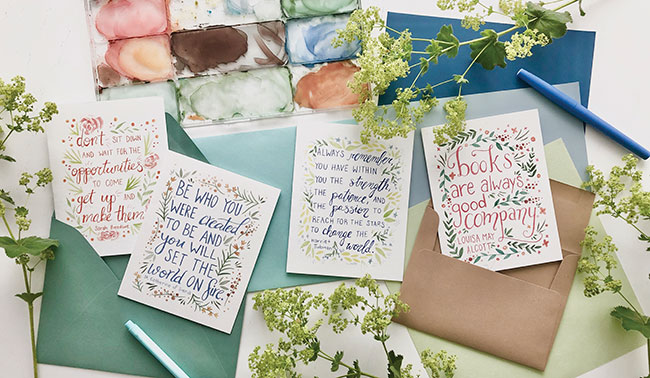 don't SIT DOWN
AND WAIT FOR THE
opportunities
TO COME
get UP AND
make them.
Sarah Breedlove
BE WHO YOU
WERE created
TO BE AND
you WILL
SET THE
WORLD ON fire.
St. Catherine of Siena
ALWAYS remember,
YOU HAVE WITHIN
YOU THE strength,
THE patience,
AND THE passion
TO REACH FOR THE STARS
TO CHANGE the
world.
HARRIET TUBMAN
books
ARE always
good
company.
LOUISA MAY
ALCOTT